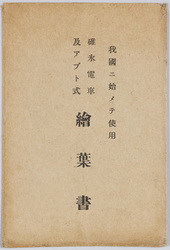 我國ニ始メテ使用
碓氷電車
及アプト式
繪葉書